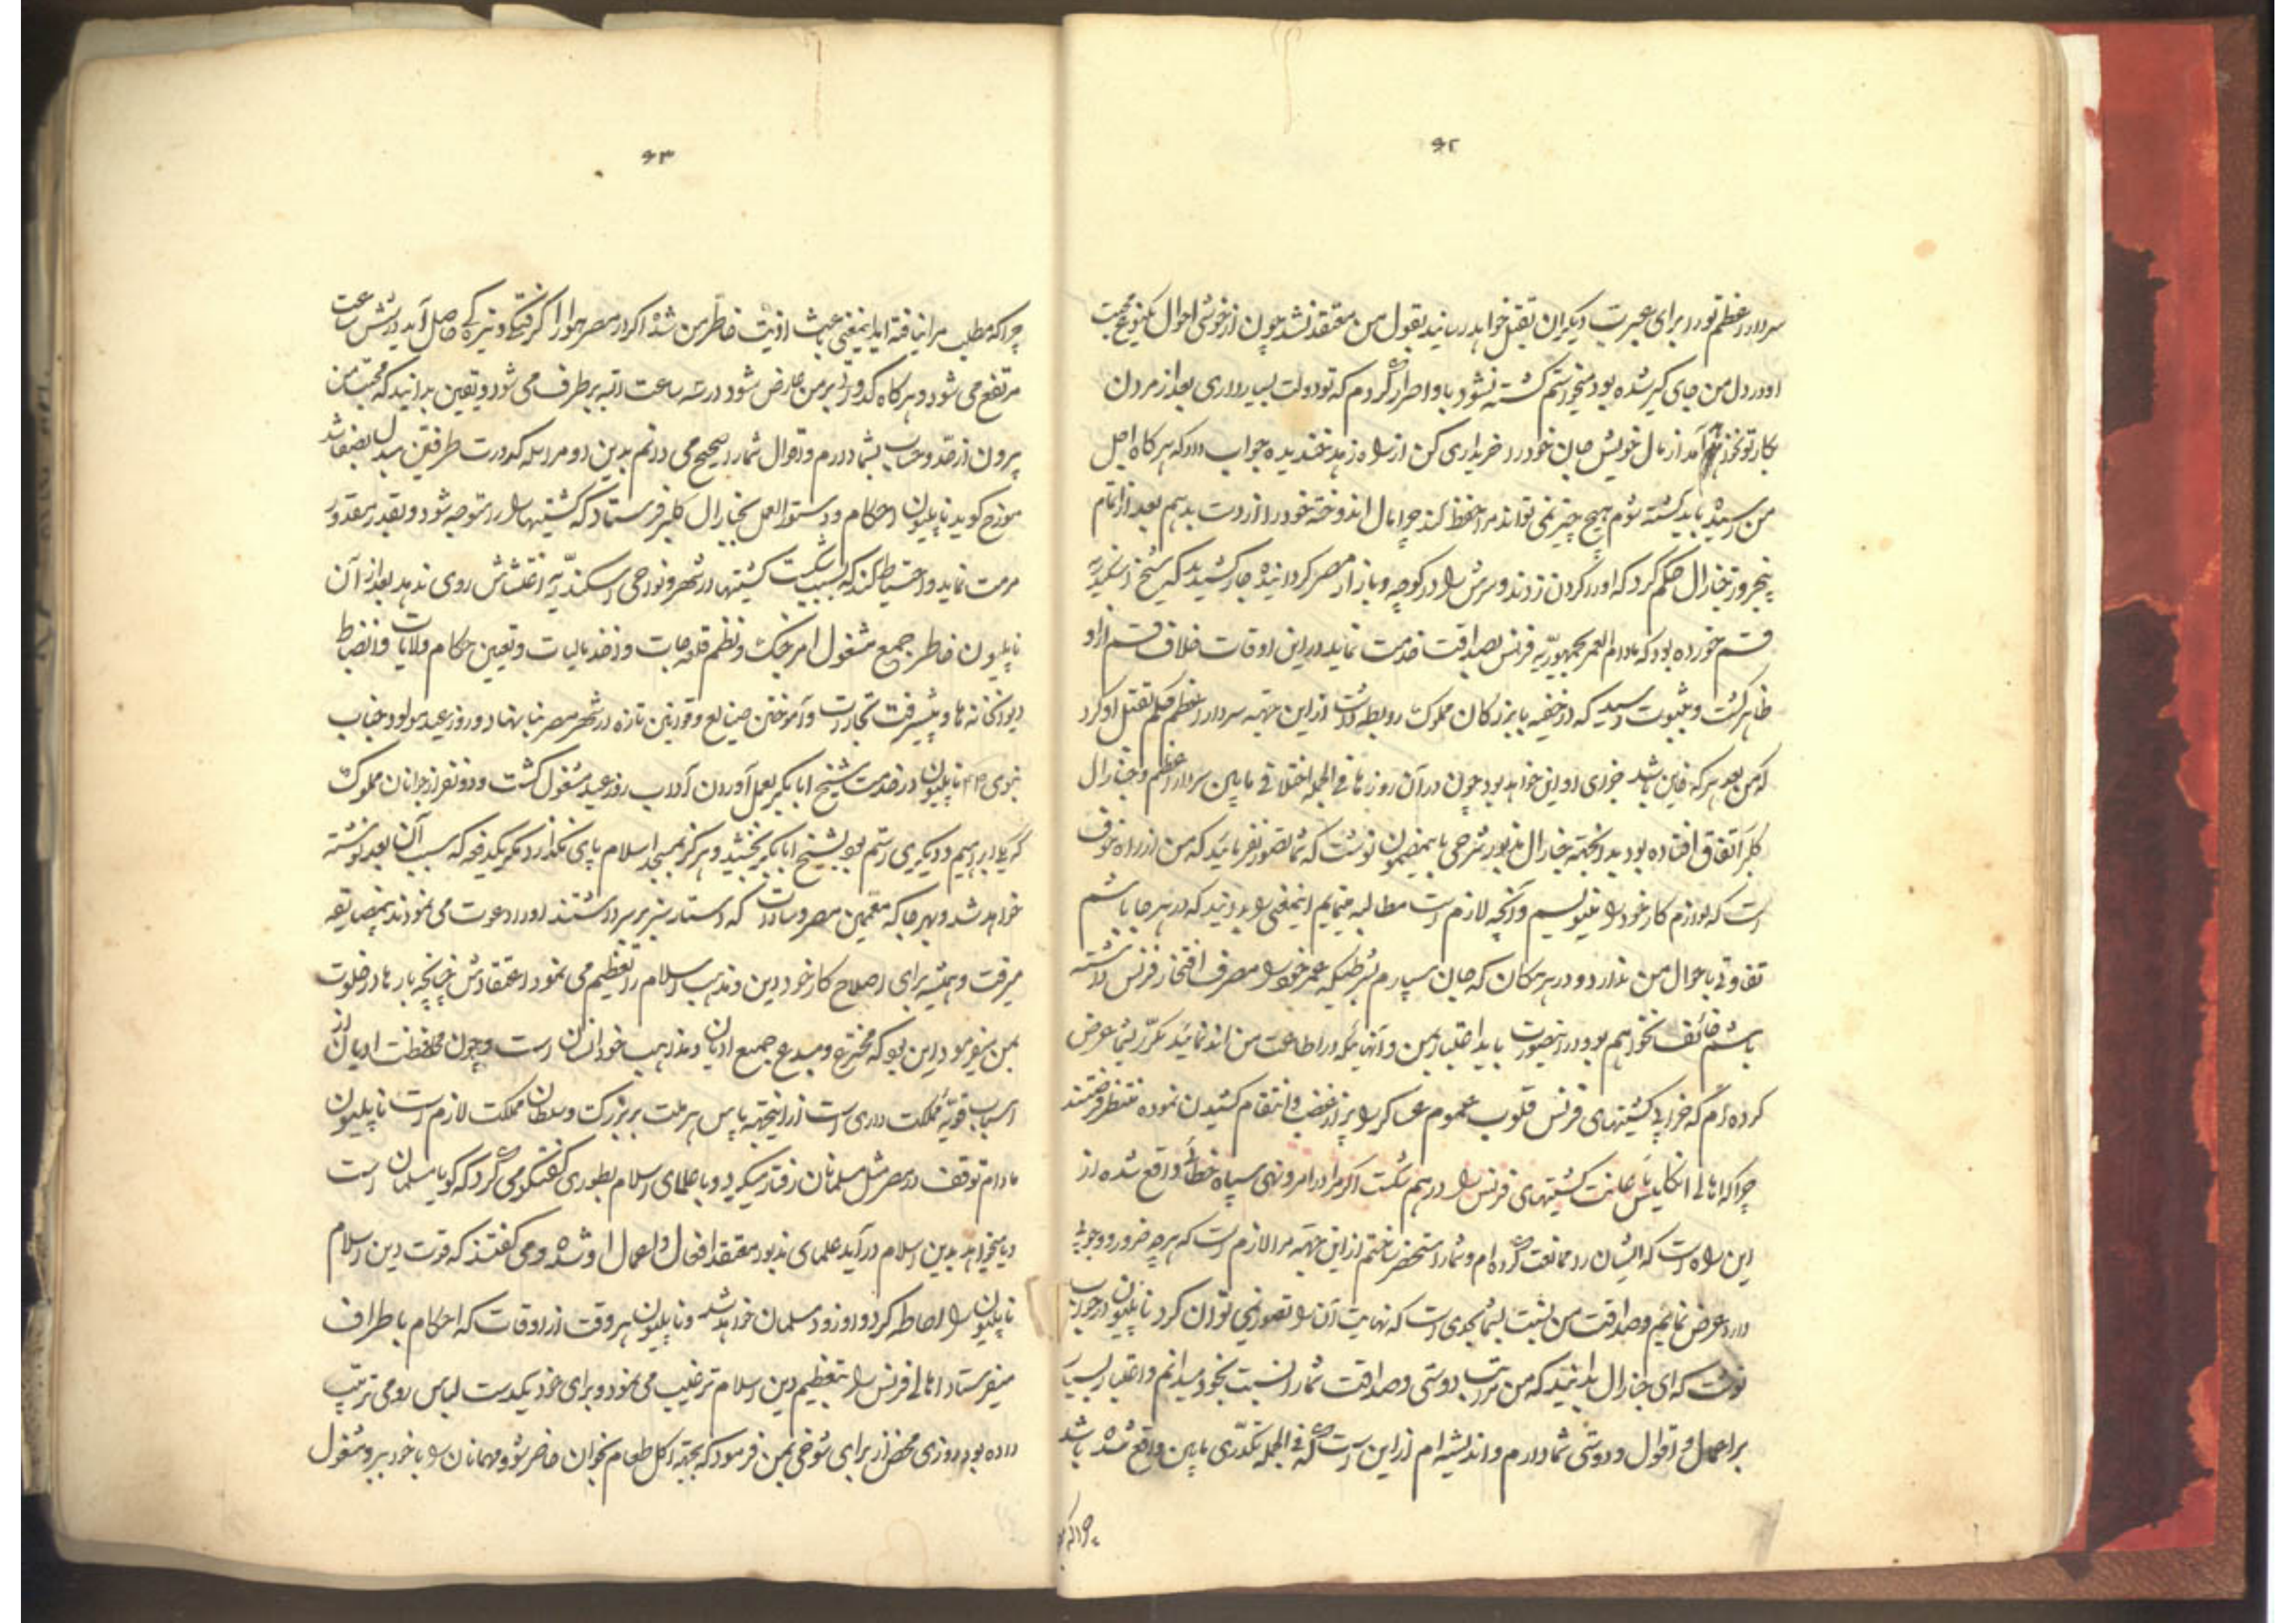 ۶۲
سردار اعظم تو را برای عبرت دیگران بقتل خواهد رسانید بقول من معتقد نشد چون از خوشی احوال محبت
او در دل من جای گیر شده بود میخواستم کشته نشود باو اصرار کردم که تو دولت بسیار داری بعد از مردن
بکار تو نخواهد آمد از مال خویش جان خود را خریداری کن از راه زهرخندیده جواب داد که هرگاه اجل
من رسیده باید کشته شوم هیچ چیز نمی تواند مرا حفظ کند چرا مال اندوخته خود را از دست بدهم بعد از اتمام
پنجروز جنارال حکم کرد که او را گردن زدند و سرش را در کوچه و بازار مصر گردانیده جار کشیدند که شیخ اسکندریه
قسم خورده بود که مادام العمر بجمهوریه فرنس بصداقت خدمت نماید در این اوقات خلاف قسم از او
ظاهر گشت و بثبوت رسید که در خفیه با بزرگان مملوک روابط داشت از این جهته سردار اعظم حکم بقتل او کرد
که من بعد هر که خاین باشد جزای او این خواهد بود چون در آن روزها فی الجمله اختلافی مابین سردار اعظم و جنارال
کلبر اتفاق افتاده بود بدانجهته جنارال مذبور شرحی باینمضمون نوشت که شما تصور نفرمائید که من از راه خوف
است که لوازم کار خود را مینویسم و آنچه لازم است مطالبه مینمایم اینمعنی را بدانید که در هر جا باشم
تفاوتی باحوال من ندارد و در هر مکان که جان سپارم بشرطیکه عمر خود را مصرف افتخار فرنس داشته
باشم خائف نخواهم بود در اینصورت باید اعتبار بمن و آنهائیکه در اطاعت من اند نمائید مکرر بشما عرض
کرده ام که خرابی کشتیهای فرنس قلوب عموم عساکر را پر از غضب و انتقام کشیدن نموده منتظر فرصتند
چرا که اهالی انگلیس کشتیهای فرنس را در هم شکست اگر مرا در امر و نهی سپاه خطائی واقع شده از
این راه است که ایشان را ممانعت کرده ام و شما را مستحضر ساختم از این جهته مرا لازم است که هر چه ضرور و وجوبی
دارد عرض نمایم و صداقت من نسبت بشما بحدی است که نهایت آن را تصور نمی توان کرد ناپلیون در جواب
نوشت که ای جنارال بدانید که من مراتب دوستی و صداقت شما را نسبت بخود میدانم و اعتبار بسیار
بر اعمال و اقوال و دوستی شما دارم و اندیشه ام از این است که فی الجمله تکدری مابین واقع شده باشد
چرا که
۶۳
چرا که مطلب مرا نیافته اید اینمعنی باعث اذیت خاطر من شده اگر در مصر هوا را گرفتگی و تیره گی حاصل آید در شش ساعت
مرتفع می شود و هرگاه کدورتی بر من عارض شود در سه ساعت البته برطرف می شود و یقین بدانید که محبت من
بیرون از حد و حساب بشما دارم و اقوال شما را صحیح می دانم بدین دو مراسله کدورت طرفین مبدل بصفا شد
مورخ گوید ناپلیون احکام و دستور العمل بجنارال کلبر فرستاد که کشتیها را متوجه شود و بقدر مقدور
مرمت نماید و احتیاط کند که بسبب شکست کشتیها در شهر و نواحی اسکندریه اغتشاش روی ندهد بعد از آن
ناپلیون خاطر جمع مشغول امر جنگ و نظم قلعه جات و اخذ مالیات و تعیین حکام ولایات و انضباط
دیوانخانه ها و پیشرفت تجارت و آموختن صنایع و قوانین تازه در شهر مصر بنا نهاد و روز عید مولود جناب
نبوی ص ناپلیون در خدمت شیخ ابابکر بعمل آوردن آداب روز عید مشغول گشت و دو نفر از جوانان مملوک
که یکی ابراهیم و دیگری رستم بود بشیخ ابابکر بخشید و هرگز بمسجد اسلام پای نگذارد مگر یکدفعه که سبب آن بعد نوشته
خواهد شد و بهر جا که معممین مصر و سادات که دستار سبز بر سر داشتند او را دعوت می نمودند بیمضایقه
میرفت و همیشه برای اصلاح کار خود دین و مذهب اسلام را تعظیم می نمود و اعتقادش چنانچه بارها در خلوت
بمن میفرمود این بود که مخترع و مبدع جمیع ادیان و مذاهب خود انسان است و چون محافظت ادیان از
اسباب قویه مملکت داری است از اینجهته پاس هر ملت بر بزرگ و سلطان مملکت لازم است ناپلیون
مادام توقف در مصر مثل مسلمانان رفتار میکرد و با علمای اسلام بطوری گفتگو می کرد که گویا مسلمان است
و یا میخواهد بدین اسلام درآید علمای مذبور معتقد افعال و اعمال او شده و می گفتند که قوت دین اسلام
ناپلیون را احاطه کرده و او زود مسلمان خواهد شد و ناپلیون هر وقت از اوقات که احکام باطراف
میفرستاد اهالی فرنس را بتعظیم دین اسلام ترغیب می نمود و برای خود یکدست لباس رومی ترتیب
داده بود روزی محض از برای شوخی بمن فرمود که بجهته اکل طعام بخوان حاضر شو و مهمانان را با خود ببر و مشغول